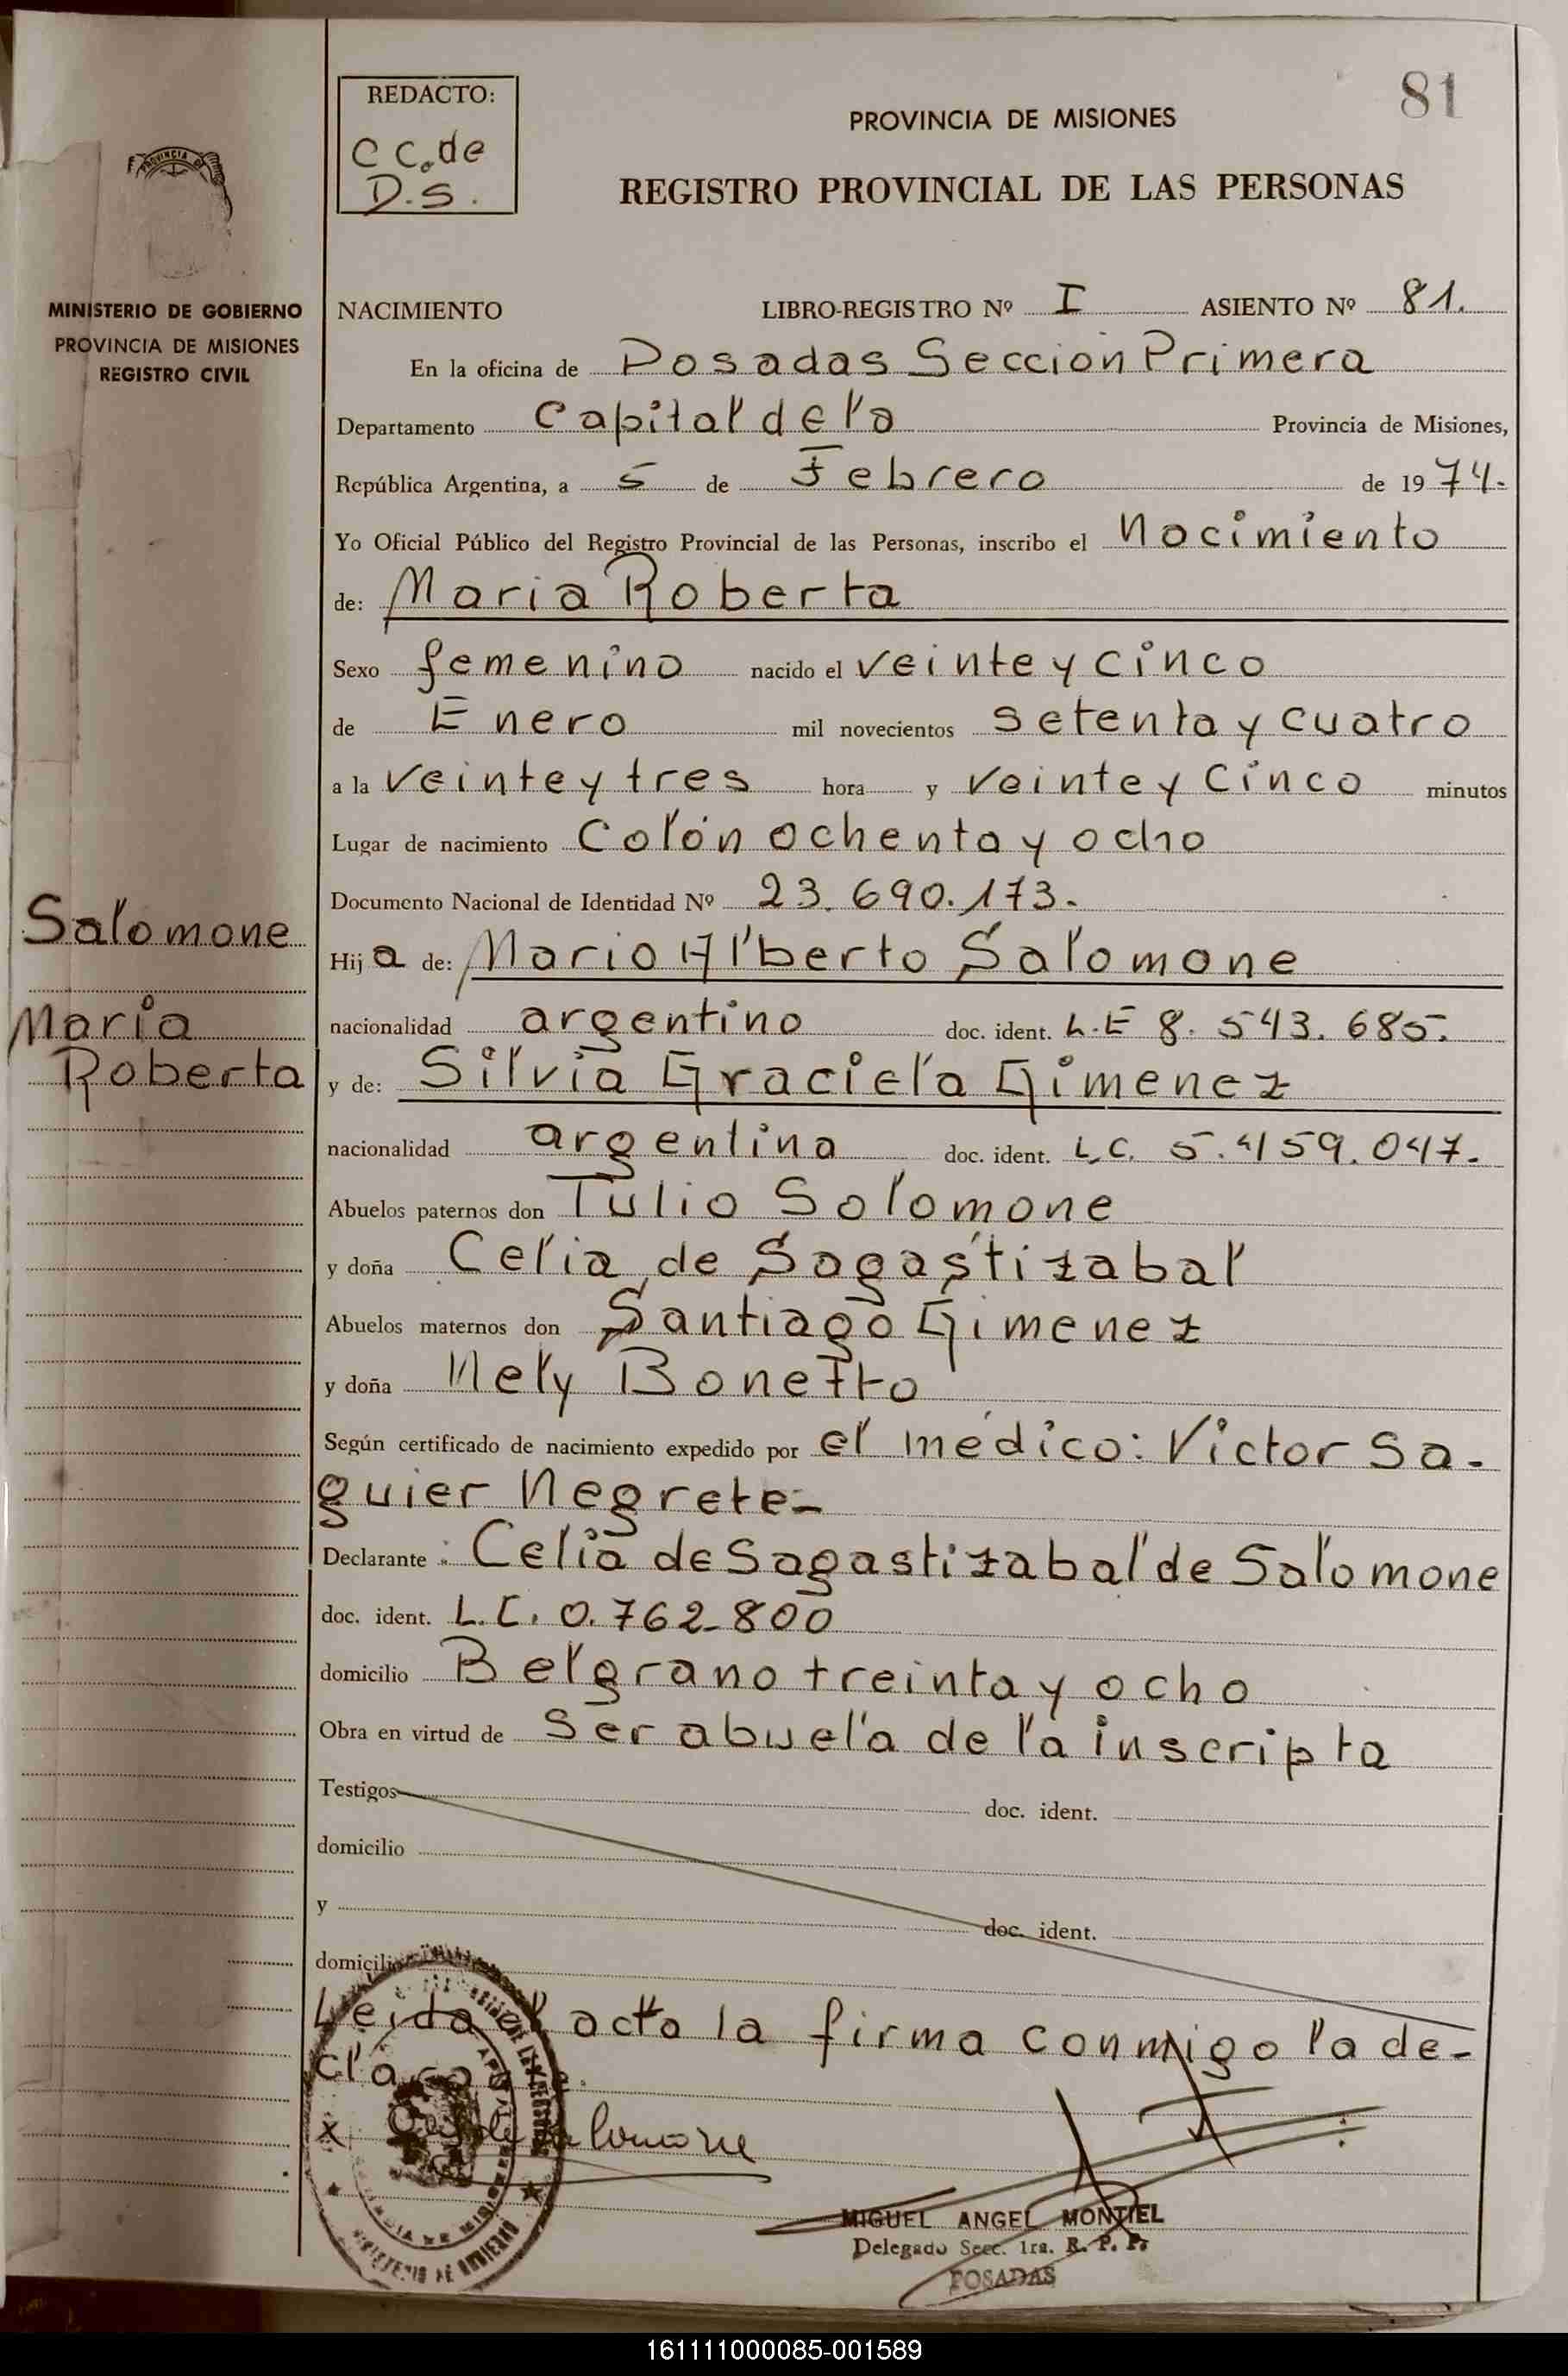 81
REDACTO:
C C. de
D.S.
PROVINCIA DE MISIONES
REGISTRO PROVINCIAL DE LAS PERSONAS
PROVINCIA DE
MINISTERIO DE GOBIERNO
PROVINCIA DE MISIONES
REGISTRO CIVIL
NACIMIENTO LIBRO-REGISTRO Nº I ASIENTO Nº 81.
En la oficina de Posadas Seccion Primera
Departamento Capital de la Provincia de Misiones,
República Argentina, a 5 de Febrero de 1974.
Yo Oficial Público del Registro Provincial de las Personas, inscribo el Nacimiento
de: Maria Roberta
Sexo femenino nacido el veinte y cinco
de Enero mil novecientos setenta y cuatro
a la veinte y tres hora y veinte y cinco minutos
Lugar de nacimiento Colón ochenta y ocho
Documento Nacional de Identidad Nº 23.690.173.
Salomone
Maria
Roberta
Hija de: Mario Alberto Salomone
nacionalidad argentino doc. ident. L.E 8.543.685.
y de: Silvia Graciela Gimenez
nacionalidad argentina doc. ident. L.C. 5.459.047.
Abuelos paternos don Tulio Salomone
y doña Celia de Sagastizabal
Abuelos maternos don Santiago Gimenez
y doña Nely Bonetto
Según certificado de nacimiento expedido por el médico: Victor Sa-
guier Negrete-
Declarante: Celia de Sagastizabal de Salomone
doc. ident. L.C. 0.762-800
domicilio Belgrano treinta y ocho
Obra en virtud de ser abuela de la inscripta
Testigos doc. ident.
domicilio
y doc. ident.
domicilio
Leida acta la firma conmigo la de-
x de Salomone
MIGUEL ANGEL MONTIEL
Delegado Secc. 1ra. R. P. P.
POSADAS
161111000085-001589